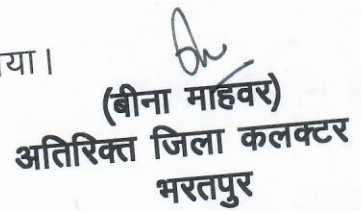 या।
(बीना माहवर)
अतिरिक्त जिला कलक्टर
भरतपुर